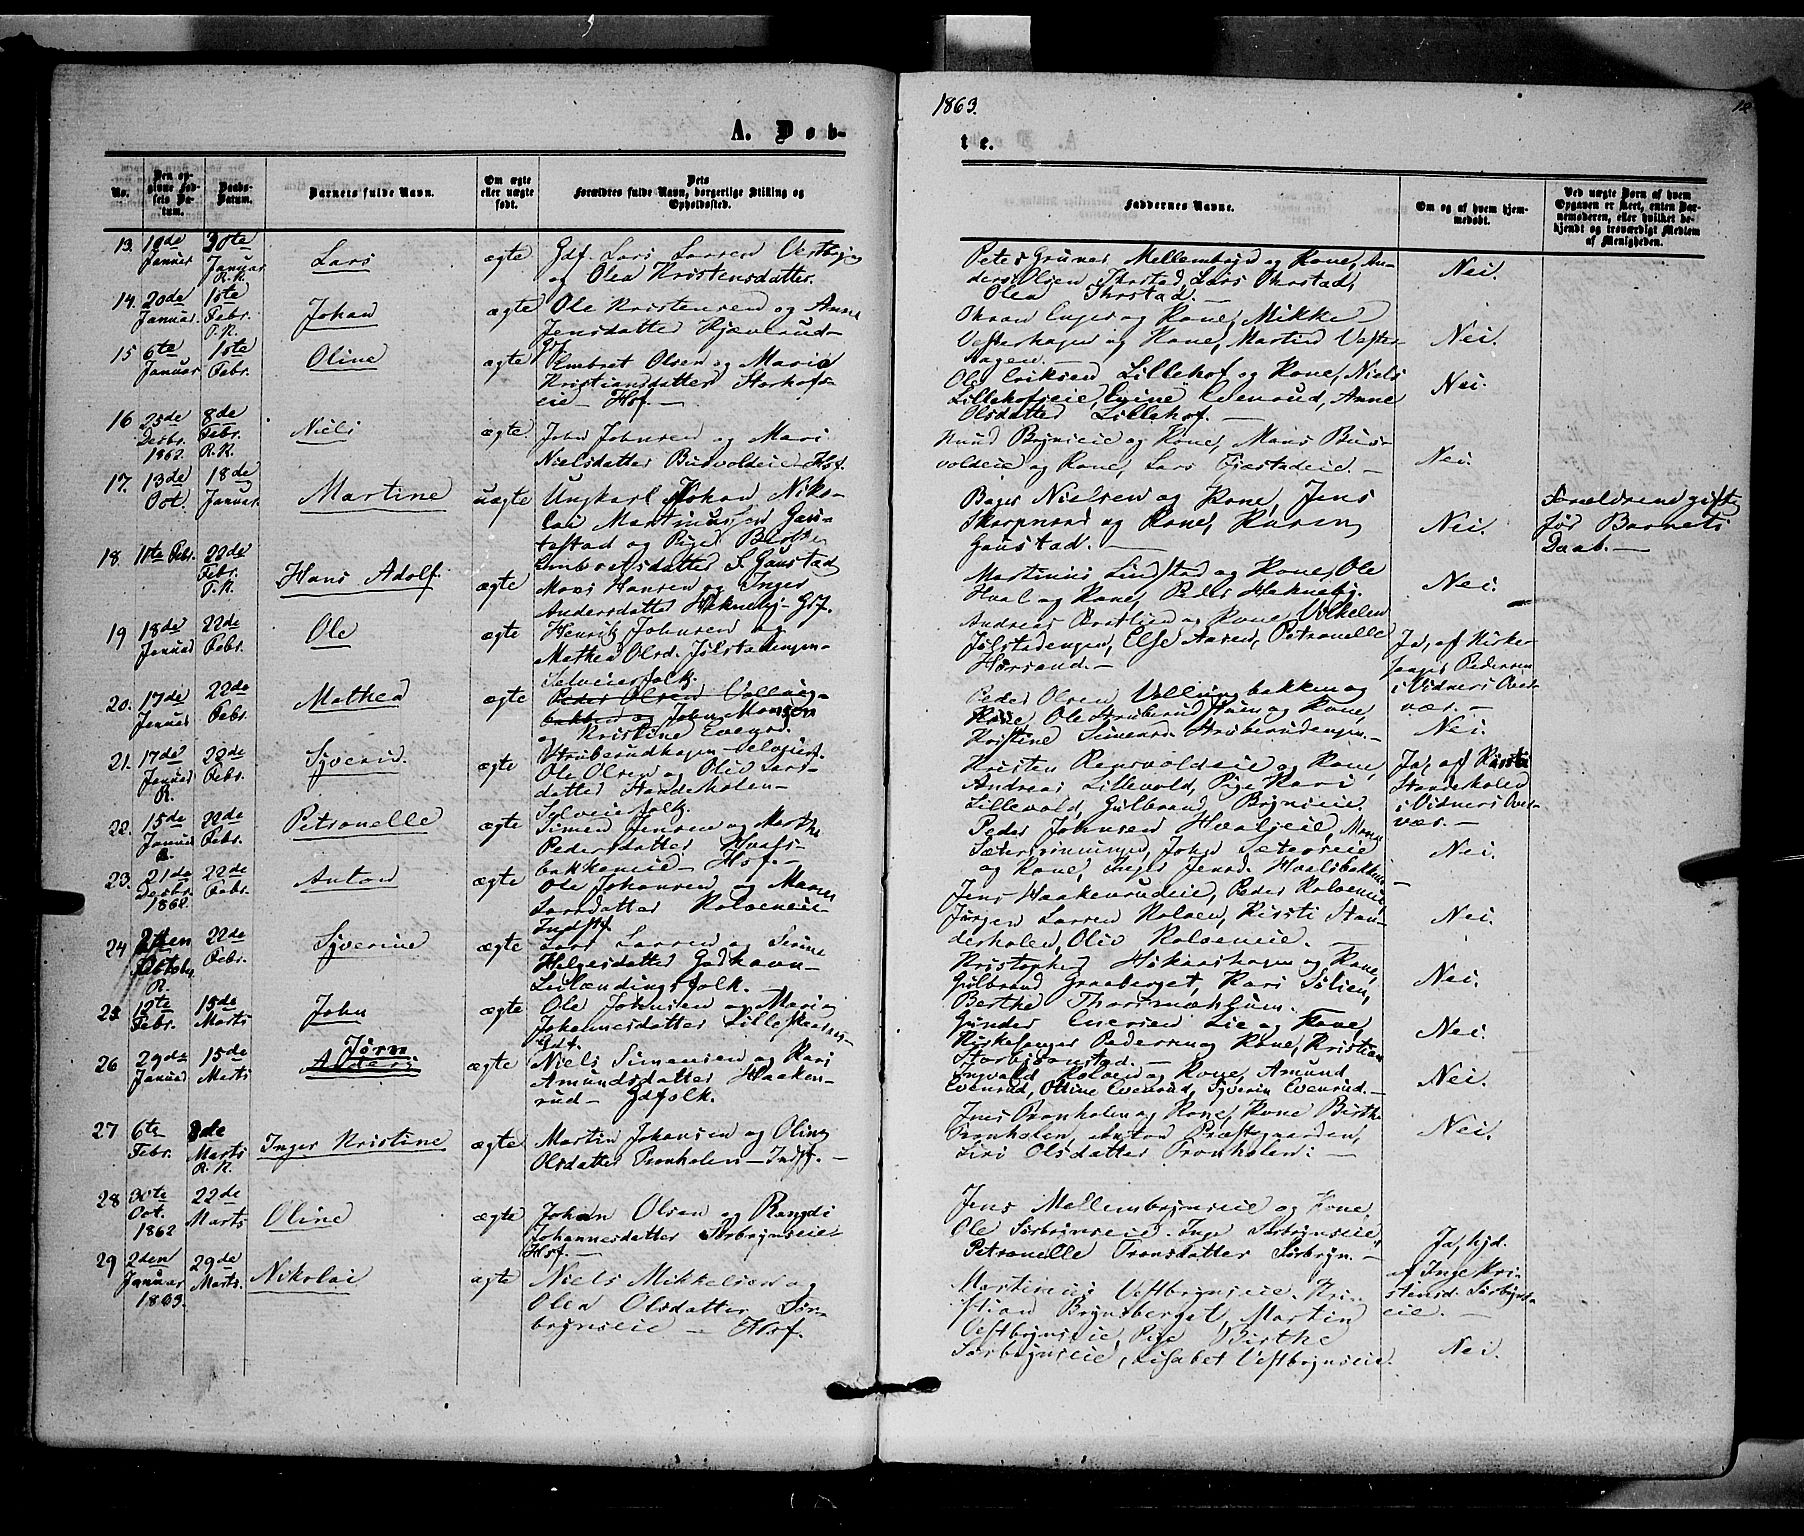 1863.
12
A. Døb-
te.
No.
Den op-
givne Fød-
sels Da-
tum.
Daabs-
Datum.
Barnets fulde Navn.
Om ægte
eller uægte
født.
Dets
Forældres fulde Navn, borgerlige Stilling og
Opholdssted.
Faddernes Navne.
Om og af hvem hjem-
medøbt.
Ved uægte Børn af hvem
Opgaven er skeet, enten Bar-
nemoderen, eller hvilket be-
kjendt og troværdigt Medlem
af Menigheden.
13. 10de Januar
30te Januar R.K.
Lars
ægte
Gdf. Lars Larsen Vestbryn
og Olea Kristensdatter.
Peter Gruner Mellembye og Kone, An-
ders Olsen Thrstad, Lars Thrstad,
Olea Thrstad.
Nei.
14. 20de Januar
1ste Febr.
Johan
ægte
Ole Kristensen og Anne
Jensdatter Kjæverud
Enger og Kone, Mikkel
Vesterhagen og Kone, Martin Vester-
hagen.
Nei.
15 6te Januar
1ste Febr.
Oline
ægte
Embret Olsen og Marie
Kristiansdatter Storhofs-
eie - Hsf. -
Ole Eriksen Lillehof og Kone, Niels
Lillehofseie, Evenrud, Anne
Olsdatter Lillehof. -
Nei.
16 25de Desbr. 1862
8de Febr. R.K.
Niels
ægte.
John Johnsen og Mari
Nielsdatter Busvoldeie Hsf.
Knud Brynseie og Kone, Mons Bus-
voldeie og Kone, Lars Fjæstadeie. -
Nei.
17. 13de Oct.
18de Januar
Martine
uægte
Ungkarl Johan Niko-
lai Martinussen Gau-
stad og Pige Berthe
Embretsdatter S. Gaustad
Nielsen og Kone, Jens
Skarpnord og Kone, Karen
Gaustad. -
Nei.
Forældrene gift
før Barnets
Daab. -
18. 11te Febr.
22de Febr.
Hans Adolf.
ægte
Mons Hansen og Inger
Andersdatter Hekneby - Gsf.
Martinus Lindstad og Kone, Ole
Hval og Kone, Peder Hekneby.
Nei.
19 18de Januar
22de Febr.
Ole
ægte
Henrik Johnsen og
Mathea Olsd. Jølstadengen -
Selveierfolk.
Andreas og Kone, Vilhelm
Jølstadengen, Else Aasen, Petronelle
Ja, af Kirke-
sanger Pedersen
i Vidners Over-
vær. -
20. 17de Januar
22de Febr.
Mathea
ægte
Peder Olsen Volling-
bakken og John Monsen
og Kristine Evensd.
Struberudhagen - Selveierf.
Peder Olsen Vollingbakken og
Kone, Ole Struberudhagen og Kone,
Kristine Simensd. Struberudengen. -
Nei.
21. 17de Januar
22de Febr.
Syverin.
ægte
Ole Olsen og Oliv Lars-
datter Standerholen -
Selveierfolk.
Kristen Rensvoldeie og Kone,
Andreas Lillevold, Pige Kari
Lillevold, Gulbrand Brynseie.
Ja, af Kirsti
Standerholen
i Vidners Over-
vær. -
22. 15de Januar
22de Febr.
Petronelle
ægte
Simen Jensen og Marthe
Pedersdatter Hvals-
bakkeneie - Hsf. -
Peder Johnsen Hvalseie,
John Sætereie
og Kone, Jensd. Hvalsbakken.
Nei.
23. 21de Desbr. 1862
22de Febr.
Anton
ægte
Ole Johansen og Maren
Larsdatter Kolveneie -
Indst.
Jens Haakenrudeie, Peder Kolveneie,
Jørgen Larsen Kolven, Kirsti Stan-
derholen, Oliv Kolveneie. -
Nei.
24
22de Febr.
Syverine
ægte
Lars Larsen og Sirine
Helgesdatter Godhavn -
folk. -
Kristopher og Kone,
Gulbrand Graaberget, Kari Sølien,
Berthe
Nei.
25 12te Febr.
15de Marts
John
ægte
Ole Johnsen og Marie
Johannesdatter
Gdf.
Gunder Iversen Lie og Kone,
Kirkesanger Pedersen og Kone, Kristian
Storbjørnstad. -
Nei.
26 29de Januar
15de Marts
Jørn
Anders
ægte
Niels Simensen og Kari
Amundsdatter Haaken-
rud - Gdfolk.
Ingvald Kolven og Kone, Amund
Evenrud, Oline Evenrud, Syverin Evenrud. -
Nei.
27 6te Febr.
8de Marts R.K.
Inger Kristine
ægte
Martin Johansen og Oline
Olsdatter Tronholen - Indst. -
Jens Tronholen og Kone, Kone Birthe
Tronholen, Anton Præstegaarden,
Siri Olsdatter Tronholen. -
Nei.
28 30te Oct. 1862
22de Marts
Oline
ægte
Johan Olsen og Rangdi
Johannesdatter Sørbrynseie
Hsf. -
Jens Mellembrynseie og Kone,
Ole Sørbrynseie, Inge Sørbrynseie,
Petronelle Tronsdatter Sørbryn. -
Ja, hjd.
af Inge Kri-
stensd. Sørbryns-
eie. -
29 2den Januar 1863.
29de Marts.
Nikolai
ægte
Niels Mikkelsen og
Olea Olsdatter Sør-
brynseie - Hsf.
Martinus Vestbrynseie, Kri-
stian Brynsberget, Martin
Vestbrynseie, Pige Birthe
Sørbrynseie, Lisabet Vestbrynseie.
Nei.